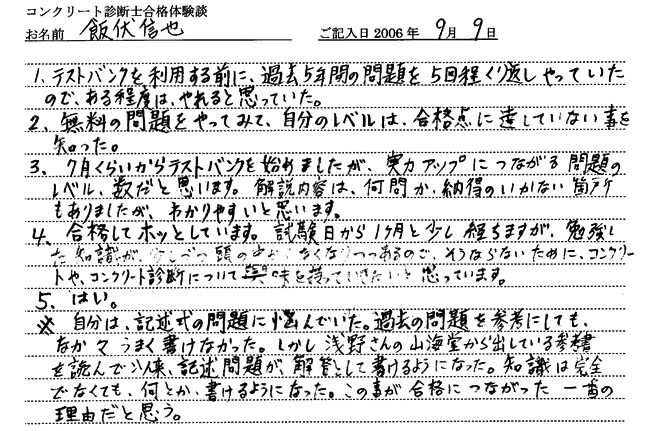 コンクリート診断士合格体験談
お名前 飯伏信也 ご記入日2006年 9月 9日
1. テストバンクを利用する前に、過去5年間の問題を5回程くり返しやっていた
ので、ある程度は、やれると思っていた。
2. 無料の問題をやってみて、自分のレベルは、合格点に達していない事を
知った。
3. 7月くらいからテストバンクを始めましたが、実力アップにつながる問題の
レベル、数だと思います。解説内容は、何問か、納得のいかない箇所
もありましたが、わかりやすいと思います。
4. 合格してホッとしています。試験日から1ヶ月と少し経ちますが、勉強し
た知識が、少しづつ頭の中からなくなりつつあるので、そうならないために、コンクリー
トや、コンクリート診断について興味を持っていきたいと思っています。
5. はい。
※ 自分は、記述式の問題に悩んでいた。過去の問題を参考にしても、
なかなかうまく書けなかった。しかし浅野さんの山海堂から出している参考書
を読んで以来、記述問題が、解答として書けるようになった。知識は完全
でなくても、何とか、書けるようになった。この事が合格につながった一番の
理由だと思う。